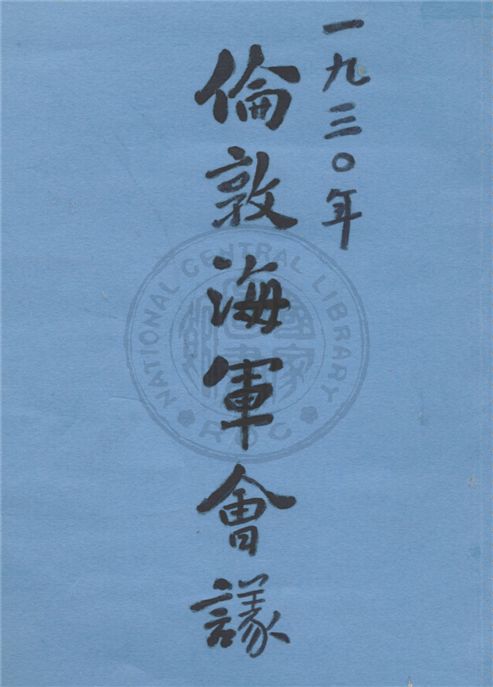 一九三〇年
倫敦海軍會議
NATIONAL CENTRAL LIBRARY
ROC
國家圖書館